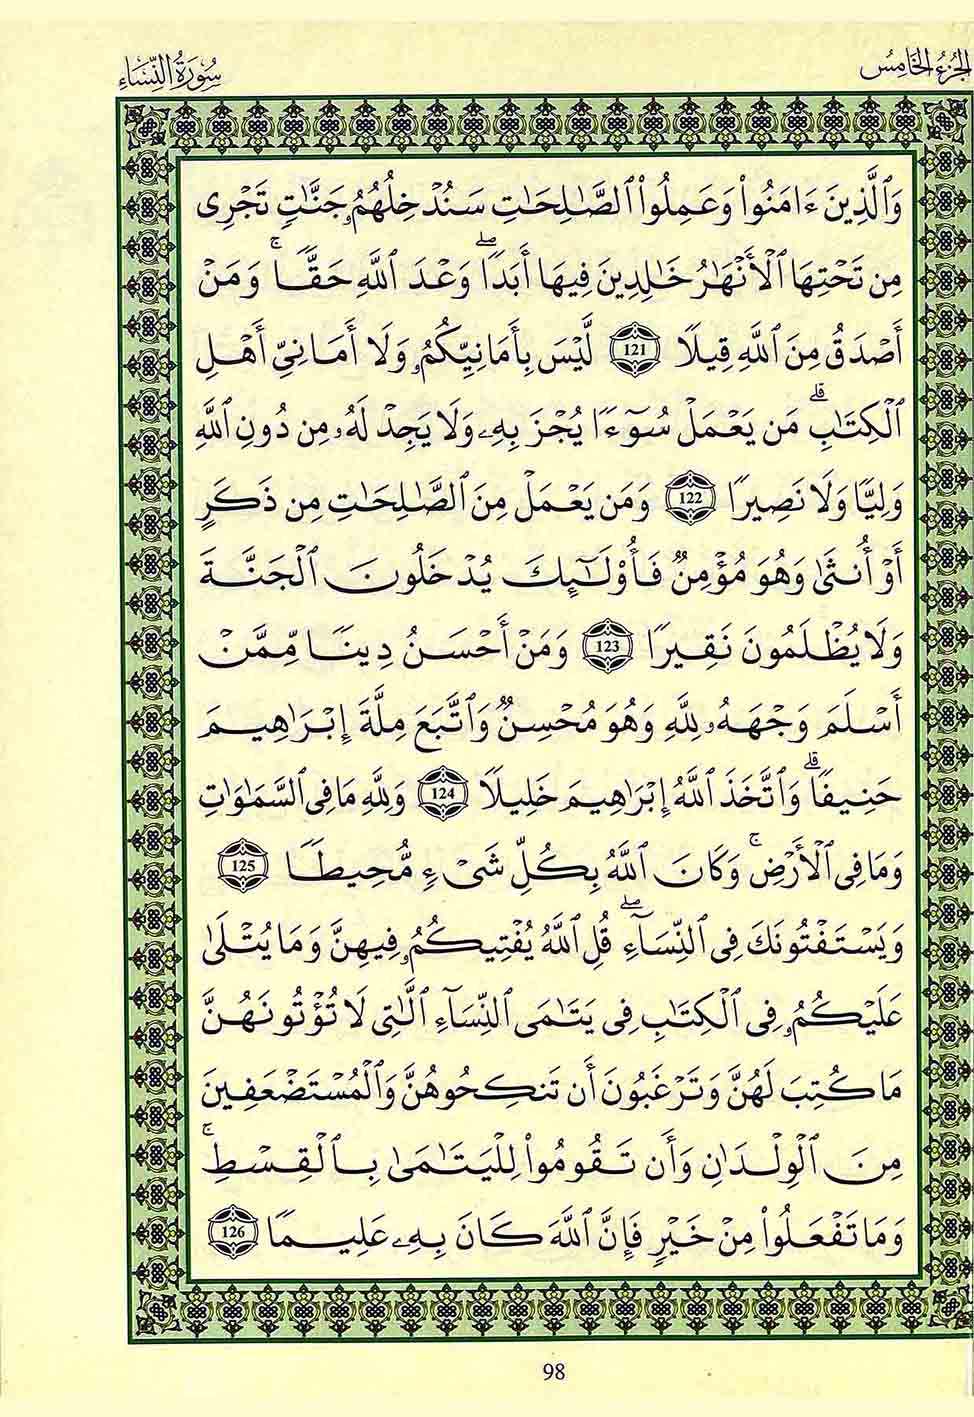 الجزء الخامس
سورة النساء
وَٱلَّذِينَ ءَامَنُواْ وَعَمِلُواْ ٱلصَّٰلِحَٰتِ سَنُدْخِلُهُمُۥ جَنَّٰتٍ تَجْرِى
مِن تَحْتِهَا ٱلْأَنْهَٰرُ خَٰلِدِينَ فِيهَا أَبَدًاۖ وَعْدَ ٱللَّهِ حَقًّاۚ وَمَنْ
أَصْدَقُ مِنَ ٱللَّهِ قِيلًا 121 لَّيْسَ بِأَمَانِيِّكُمُۥ وَلَا أَمَانِيِّ أَهْلِ
ٱلْكِتَٰبِۗ مَن يَعْمَلْ سُوٓءًا يُجْزَ بِهِۦ وَلَا يَجِدْ لَهُۥ مِن دُونِ ٱللَّهِ
وَلِيًّا وَلَا نَصِيرًا 122 وَمَن يَعْمَلْ مِنَ ٱلصَّٰلِحَٰتِ مِن ذَكَرٍ
أَوْ أُنثَىٰ وَهُوَ مُؤْمِنٌ فَأُوْلَٰٓئِكَ يُدْخَلُونَ ٱلْجَنَّةَ
وَلَا يُظْلَمُونَ نَقِيرًا 123 وَمَنْ أَحْسَنُ دِينًا مِّمَّنْ
أَسْلَمَ وَجْهَهُۥ لِلَّهِ وَهُوَ مُحْسِنٌ وَٱتَّبَعَ مِلَّةَ إِبْرَٰهِيمَ
حَنِيفًاۗ وَٱتَّخَذَ ٱللَّهُ إِبْرَٰهِيمَ خَلِيلًا 124 وَلِلَّهِ مَا فِى ٱلسَّمَٰوَٰتِ
وَمَا فِى ٱلْأَرْضِۚ وَكَانَ ٱللَّهُ بِكُلِّ شَىْءٍ مُّحِيطًا 125
وَيَسْتَفْتُونَكَ فِى ٱلنِّسَآءِۖ قُلِ ٱللَّهُ يُفْتِيكُمُۥ فِيهِنَّ وَمَا يُتْلَىٰ
عَلَيْكُمُۥ فِى ٱلْكِتَٰبِ فِى يَتَٰمَى ٱلنِّسَآءِ ٱلَّٰتِى لَا تُؤْتُونَهُنَّ
مَا كُتِبَ لَهُنَّ وَتَرْغَبُونَ أَن تَنكِحُوهُنَّ وَٱلْمُسْتَضْعَفِينَ
مِنَ ٱلْوِلْدَٰنِ وَأَن تَقُومُواْ لِلْيَتَٰمَىٰ بِٱلْقِسْطِۚ
وَمَا تَفْعَلُواْ مِنْ خَيْرٍ فَإِنَّ ٱللَّهَ كَانَ بِهِۦ عَلِيمًا 126
98